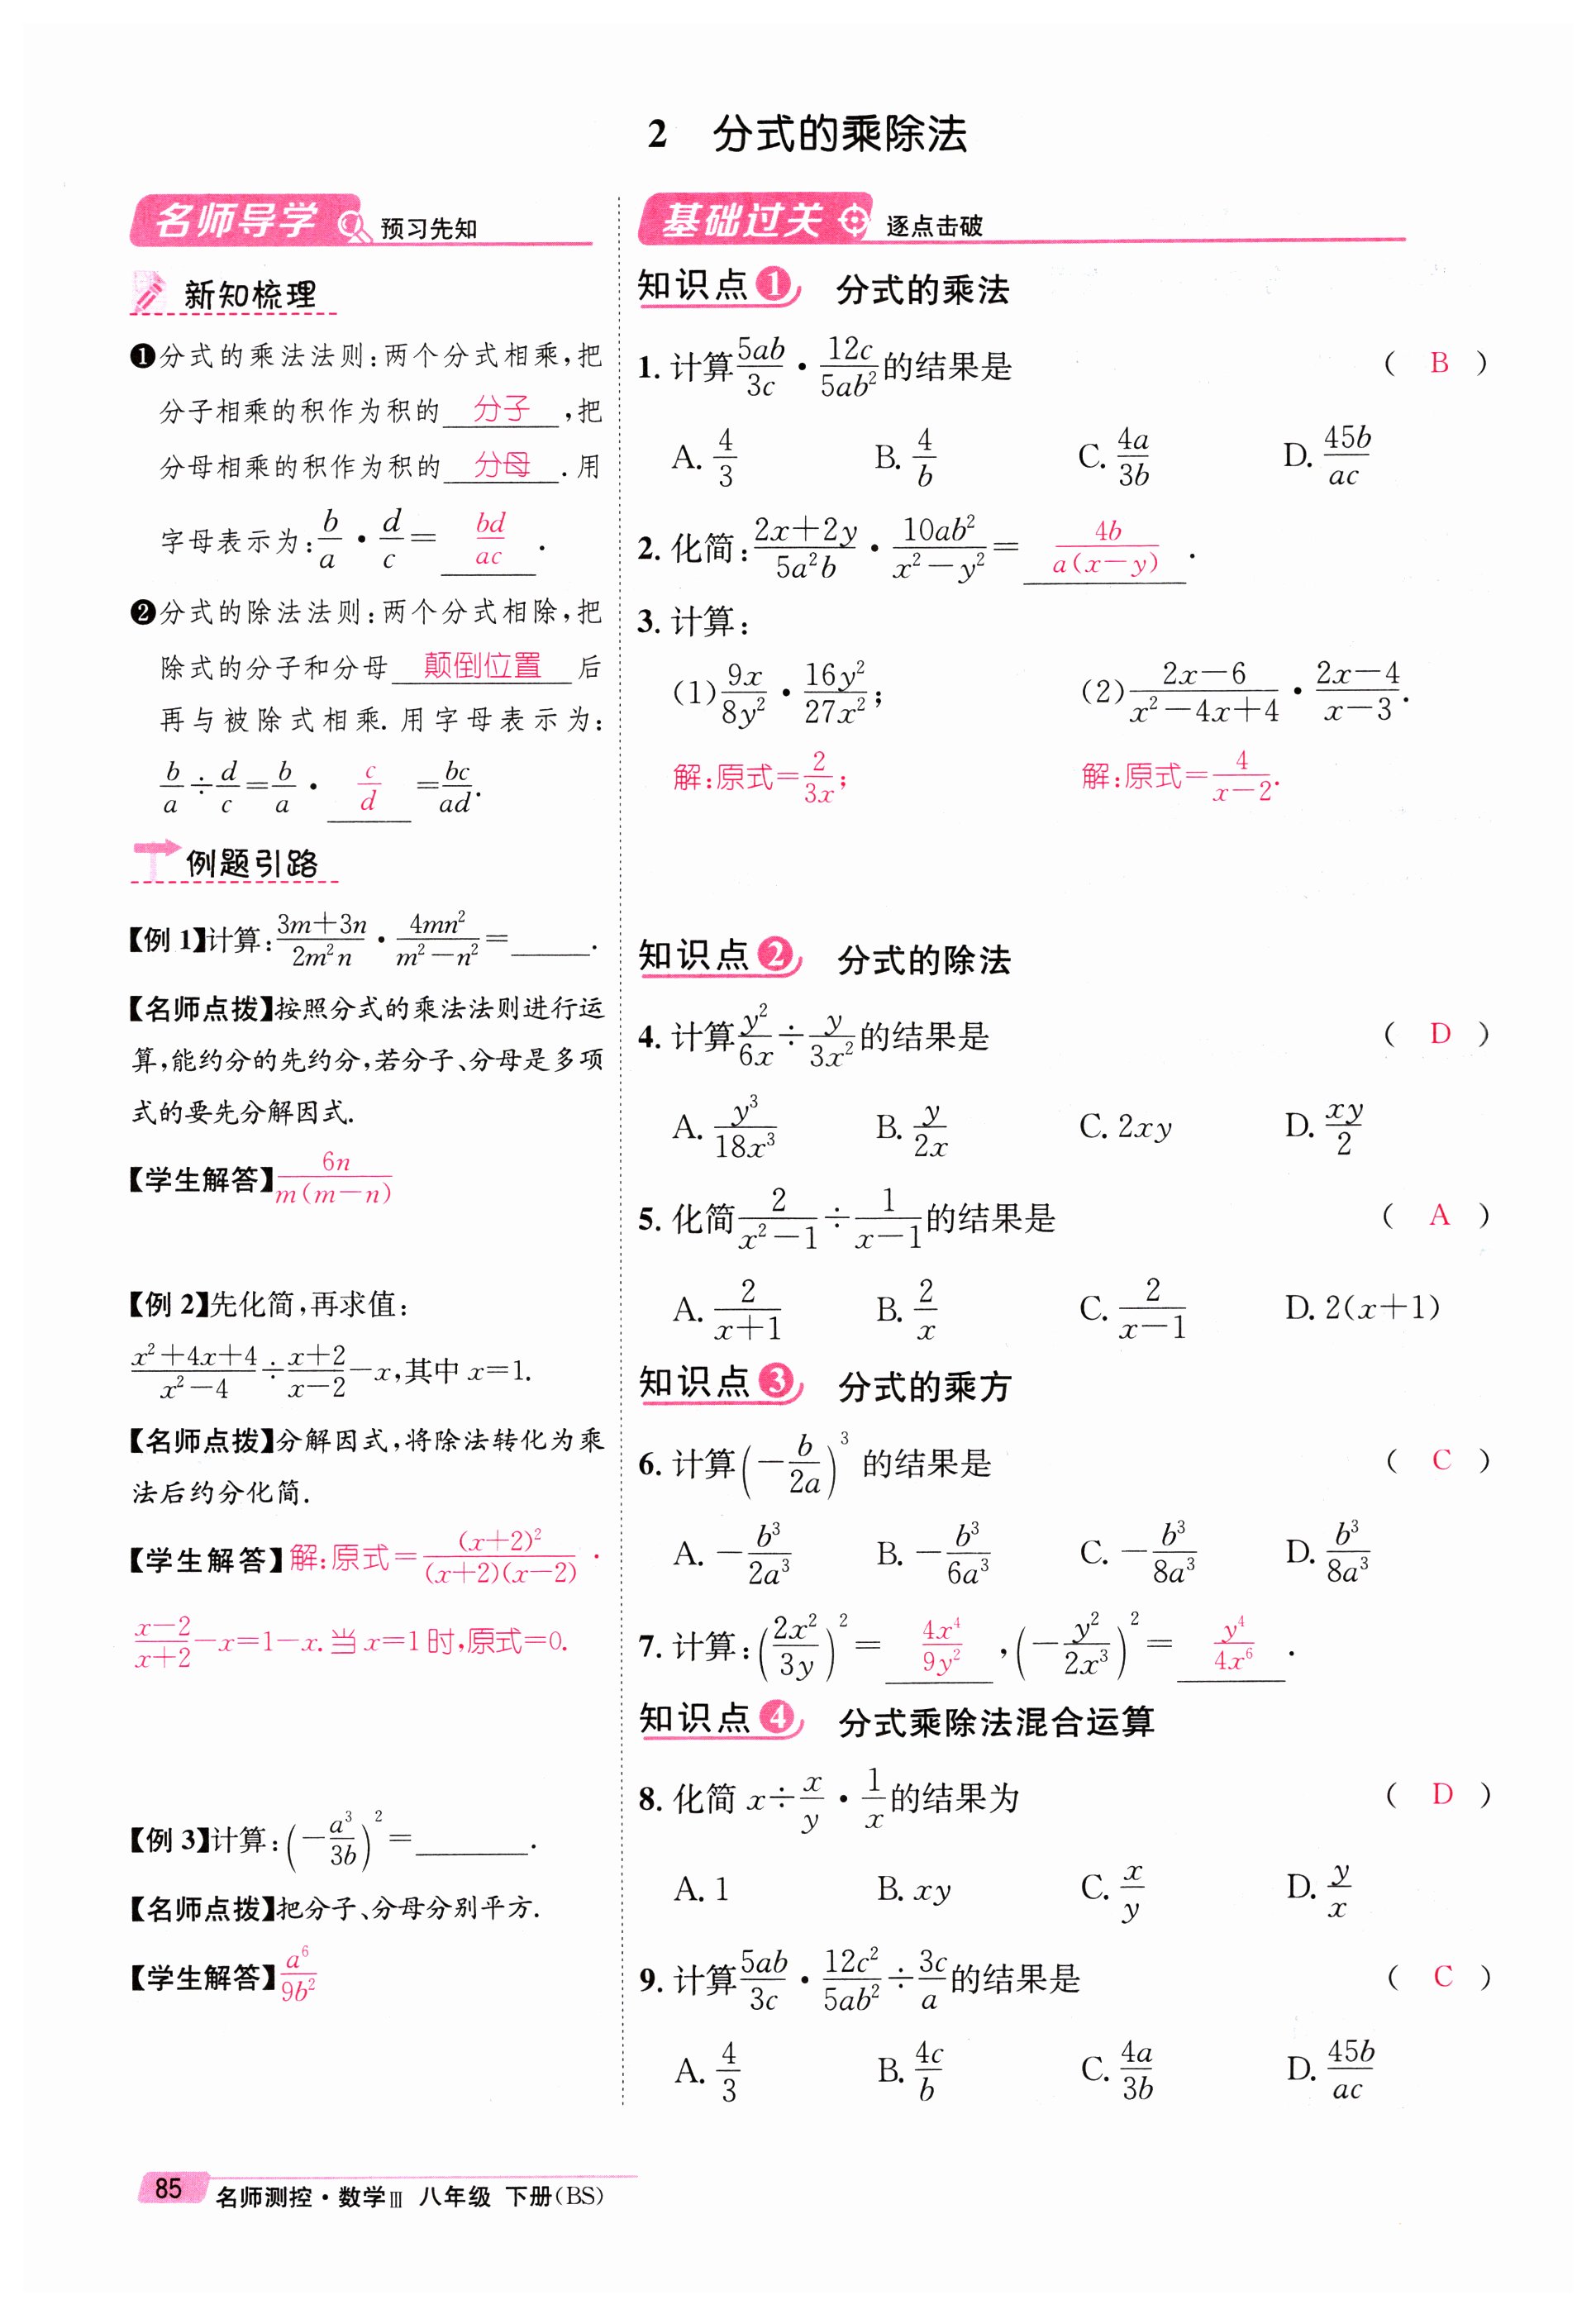 2 分式的乘除法
名师导学 预习先知
新知梳理
❶分式的乘法法则:两个分式相乘,把
分子相乘的积作为积的 分子 ,把
分母相乘的积作为积的 分母 .用
字母表示为:b/a·d/c= bd/ac .
❷分式的除法法则:两个分式相除,把
除式的分子和分母 颠倒位置 后
再与被除式相乘.用字母表示为:
b/a÷d/c=b/a· c/d =bc/ad.
例题引路
【例1】计算:(3m+3n)/(2m²n)·(4mn²)/(m²−n²)=______.
【名师点拨】按照分式的乘法法则进行运
算,能约分的先约分,若分子、分母是多项
式的要先分解因式.
【学生解答】6n/(m(m−n))
【例2】先化简,再求值:
(x²+4x+4)/(x²−4)÷(x+2)/(x−2)−x,其中x=1.
【名师点拨】分解因式,将除法转化为乘
法后约分化简.
【学生解答】解:原式=(x+2)²/((x+2)(x−2))·
(x−2)/(x+2)−x=1−x.当x=1时,原式=0.
【例3】计算:(−a³/3b)²=________.
【名师点拨】把分子、分母分别平方.
【学生解答】a⁶/9b²
基础过关 逐点击破
知识点1 分式的乘法
1.计算5ab/3c·12c/5ab²的结果是 ( B )
A.4/3 B.4/b C.4a/3b D.45b/ac
2.化简:(2x+2y)/(5a²b)·(10ab²)/(x²−y²)= 4b/(a(x−y)) .
3.计算:
(1)9x/8y²·16y²/27x²; (2)(2x−6)/(x²−4x+4)·(2x−4)/(x−3).
解:原式=2/3x; 解:原式=4/(x−2).
知识点2 分式的除法
4.计算y²/6x÷y/3x²的结果是 ( D )
A.y³/18x³ B.y/2x C.2xy D.xy/2
5.化简2/(x²−1)÷1/(x−1)的结果是 ( A )
A.2/(x+1) B.2/x C.2/(x−1) D.2(x+1)
知识点3 分式的乘方
6.计算(−b/2a)³的结果是 ( C )
A.−b³/2a³ B.−b³/6a³ C.−b³/8a³ D.b³/8a³
7.计算:(2x²/3y)²= 4x⁴/9y² ,(−y²/2x³)²= y⁴/4x⁶ .
知识点4 分式乘除法混合运算
8.化简x÷x/y·1/x的结果为 ( D )
A.1 B.xy C.x/y D.y/x
9.计算5ab/3c·12c²/5ab²÷3c/a的结果是 ( C )
A.4/3 B.4c/b C.4a/3b D.45b/ac
85 名师测控·数学Ⅲ 八年级 下册(BS)